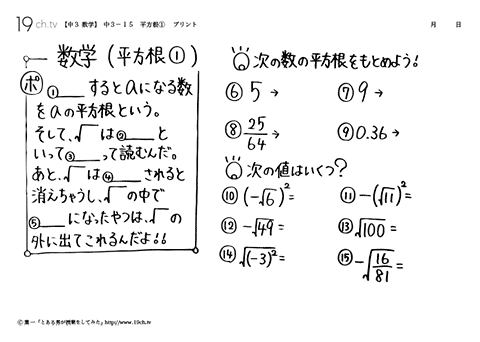 19ch.tv 【中3 数学】 中3-15 平方根① プリント 月 日
数学(平方根①)
ポ ①____ するとaになる数
をaの平方根という。
そして、√ は②____と
いって③____って読むんだ。
あと、√ は④____されると
消えちゃうし、√ の中で
⑤____になったやつは、√ の
外に出てこれるんだよ!!
次の数の平方根をもとめよう!
⑥ 5 → ⑦ 9 →
⑧ 25/64 → ⑨ 0.36 →
次の値はいくつ?
⑩ (-√6)²= ⑪ -(√11)²=
⑫ -√49= ⑬ √100=
⑭ √(-3)²= ⑮ -√16/81=
Ⓒ 葉一「とある男が授業をしてみた」http://www.19ch.tv